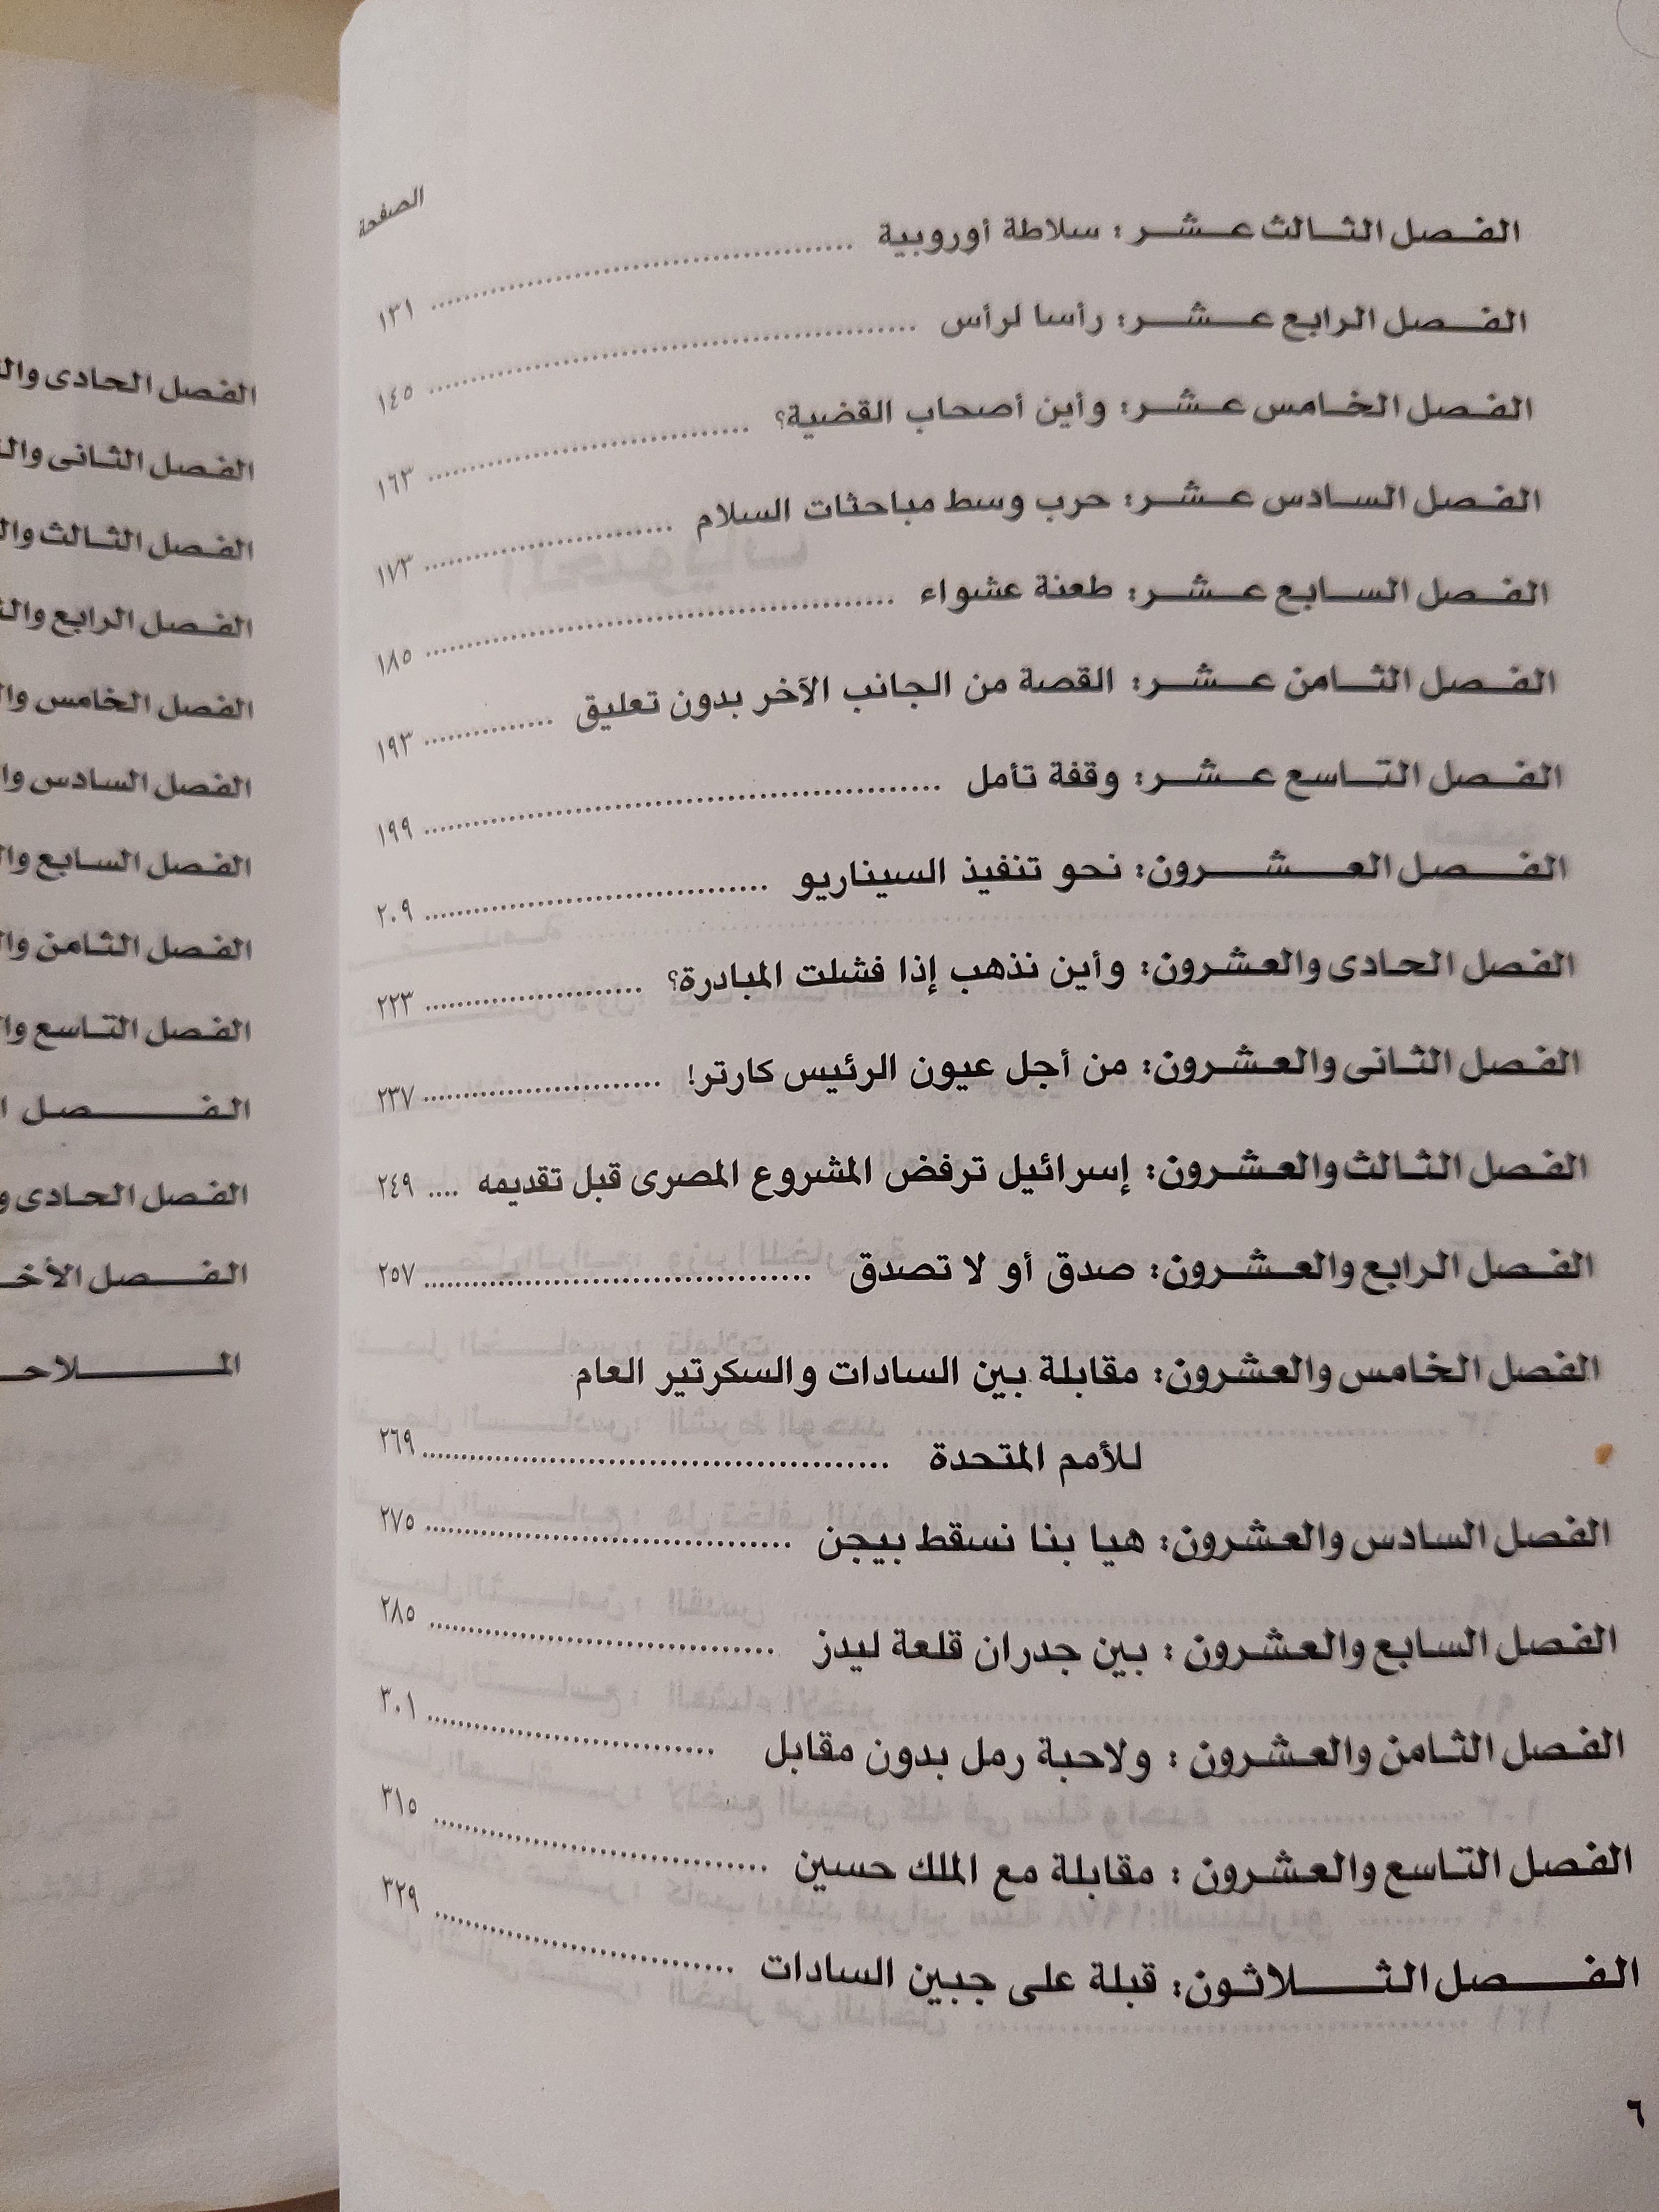 الصفحة
الفصل الثالث عشر : سلاطة أوروبية ........ ١٣١
الفصل الرابع عشر: رأسا لرأس ........ ١٤٥
الفصل الخامس عشر: وأين أصحاب القضية؟ ........ ١٦٣
الفصل السادس عشر: حرب وسط مباحثات السلام ........ ١٧٣
الفصل السابع عشر: طعنة عشواء ........ ١٨٥
الفصل الثامن عشر: القصة من الجانب الآخر بدون تعليق ........ ١٩٣
الفصل التاسع عشر: وقفة تأمل ........ ١٩٩
الفصل العشرون: نحو تنفيذ السيناريو ........ ٢٠٩
الفصل الحادى والعشرون: وأين نذهب إذا فشلت المبادرة؟ ........ ٢٢٣
الفصل الثانى والعشرون: من أجل عيون الرئيس كارتر! ........ ٢٣٧
الفصل الثالث والعشرون: إسرائيل ترفض المشروع المصرى قبل تقديمه .... ٢٤٩
الفصل الرابع والعشرون: صدق أو لا تصدق ........ ٢٥٧
الفصل الخامس والعشرون: مقابلة بين السادات والسكرتير العام
للأمم المتحدة ........ ٢٦٩
الفصل السادس والعشرون: هيا بنا نسقط بيجن ........ ٢٧٥
الفصل السابع والعشرون : بين جدران قلعة ليدز ........ ٢٨٥
الفصل الثامن والعشرون : ولاحبة رمل بدون مقابل ........ ٣٠١
الفصل التاسع والعشرون : مقابلة مع الملك حسين ........ ٣١٥
الفصل الثلاثون: قبلة على جبين السادات ........ ٣٢٩
٦
الفصل الحادى
الفصل الثانى
الفصل الثالث
الفصل الرابع
الفصل الخامس
الفصل السادس
الفصل السابع
الفصل الثامن
الفصل التاسع
الفصل
الفصل الحادى
الفصل